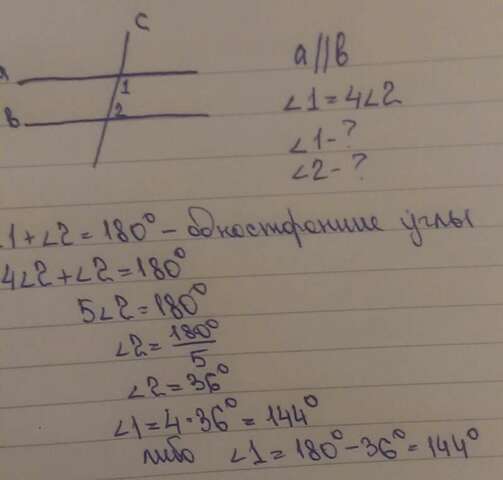 c
a
1
в
2
a||в
∠1=4∠2
∠1-?
∠2-?
∠1+∠2=180° - односторонние углы
4∠2+∠2=180°
5∠2=180°
∠2=180°/5
∠2=36°
∠1=4·36°=144°
либо ∠1=180°-36°=144°